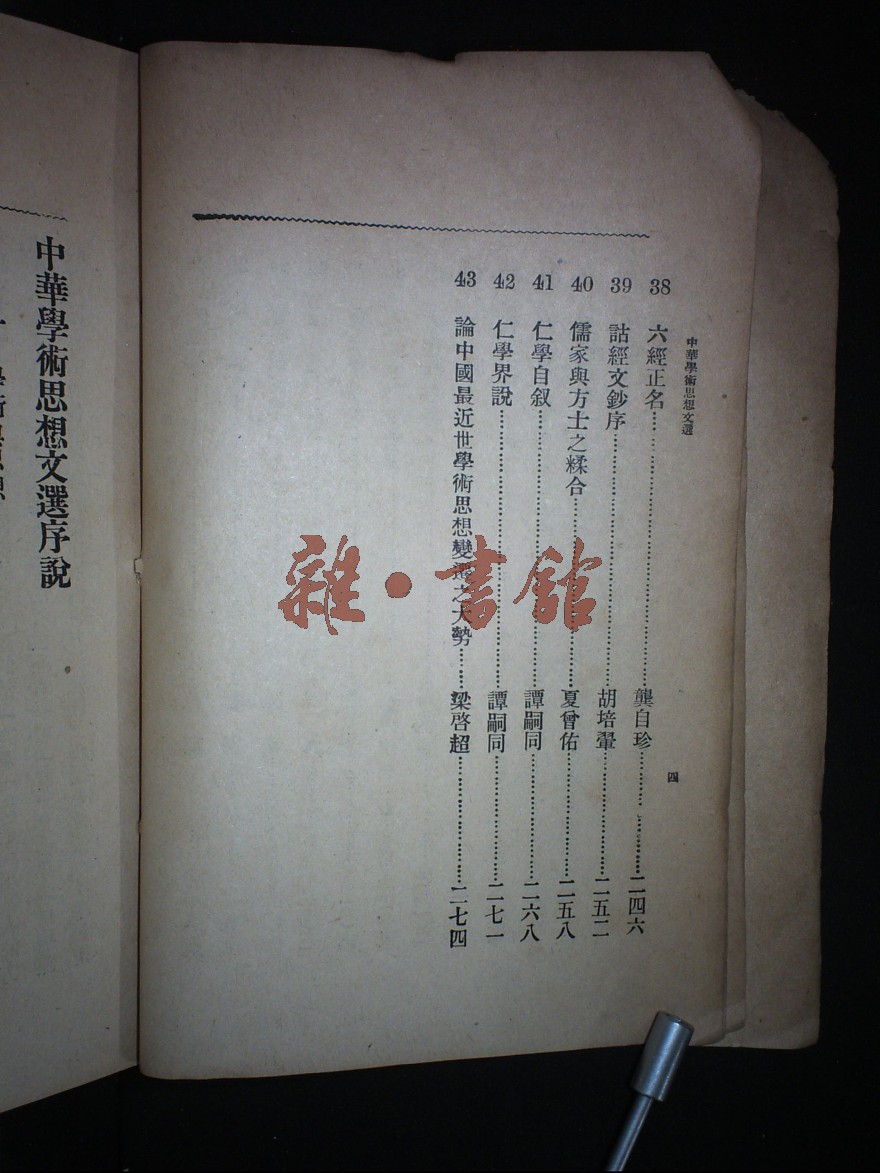 中華學術思想文選
四
38 六經正名 龔自珍 二四六
39 詁經文鈔序 胡培翬 二五二
40 儒家與方士之糅合 夏曾佑 二五八
41 仁學自叙 譚嗣同 二六八
42 仁學界說 譚嗣同 二七一
43 論中國最近世學術思想變遷之大勢 梁啓超 二七四
中華學術思想文選序說
雜·書館